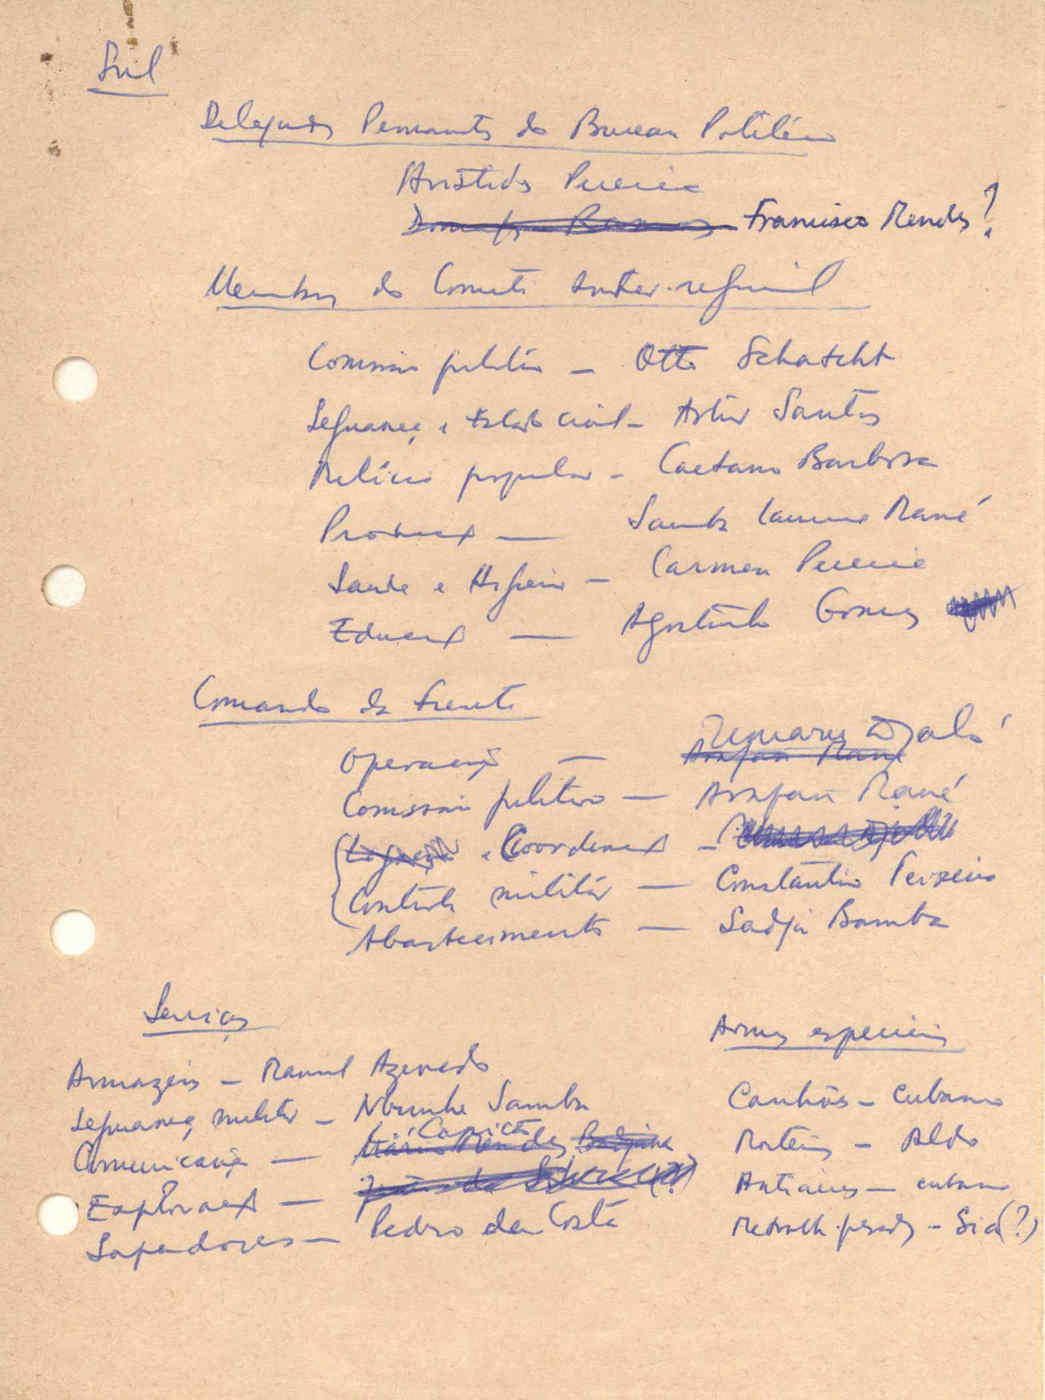 Sul
Delegados Permanentes do Bureau Político
Aristides Pereira
Domingos Ramos Francisco Mendes?
Membros do Comité Inter-regional
Comissão política – Otto Schatcht
Segurança e Estado civil – Artur Santos
Milícia popular – Caetano Barbosa
Produção – Samba Lamine Mané
Saúde e Higiene – Carmen Pereira
Educação – Agostinho Gomes
Comando da Frente
Operações – Umaru Djaló
Arafan Mané
Comissário político – Arafan Mané
Ligação e Coordenação –
Controle militar – Constantino Teixeira
Abastecimento – Sadjá Bamba
Serviços
Armazéns – Manuel Azevedo
Segurança militar – Nbunhe Samba
Comunicações – Mário Mendes
Exploração – (?)
Sapadores – Pedro da Costa
Armas especiais
Canhões – cubano
Morteiros – Aldo
Antiaéreas – cubano
Metralh. pesadas – Sid(?)